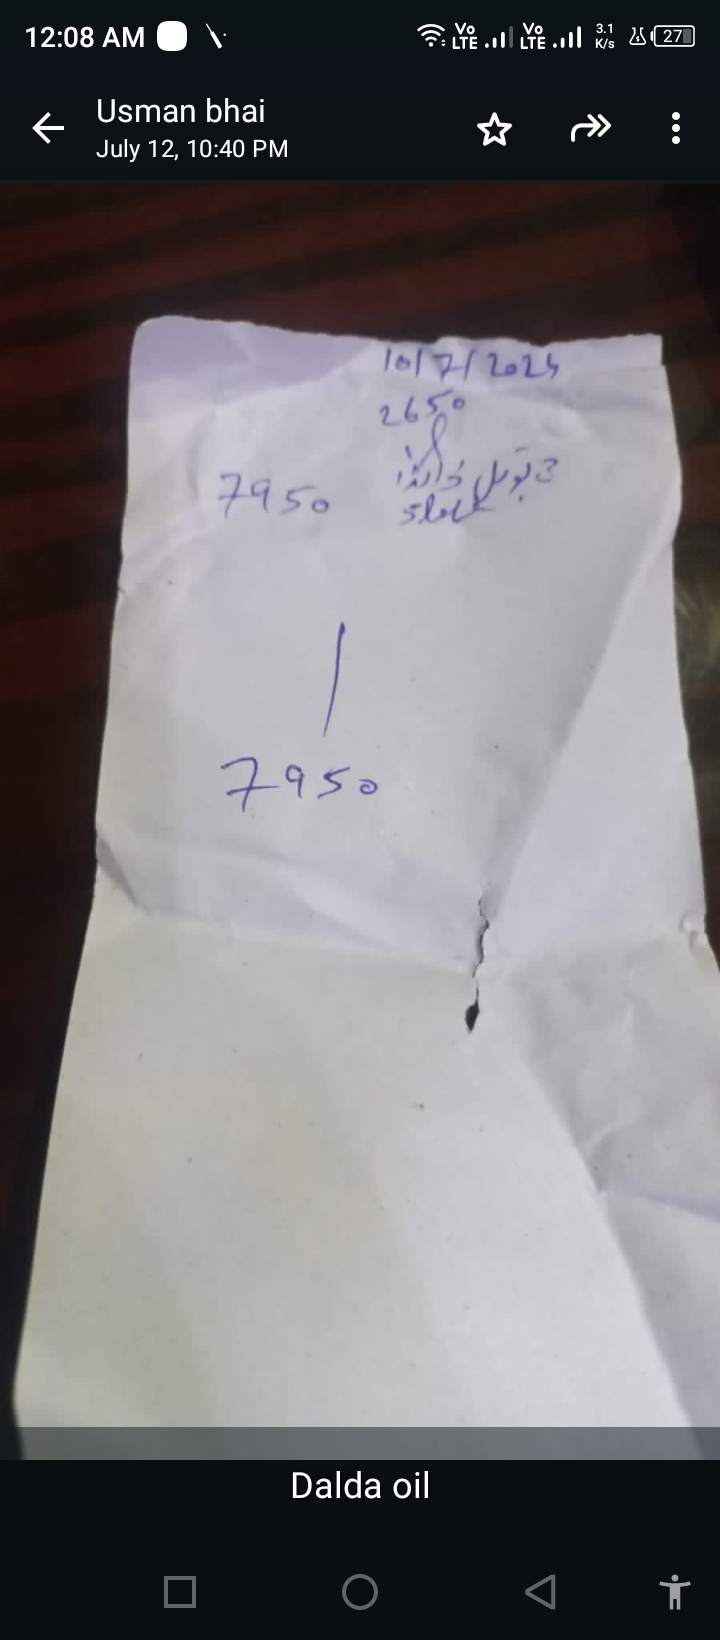 12:08 AM
Vo LTE Vo LTE 3.1 K/s 27
Usman bhai
July 12, 10:40 PM
10/7/2024
2650
3 بوتل ڈالڈا
7950
5 لیٹر
7950
Dalda oil